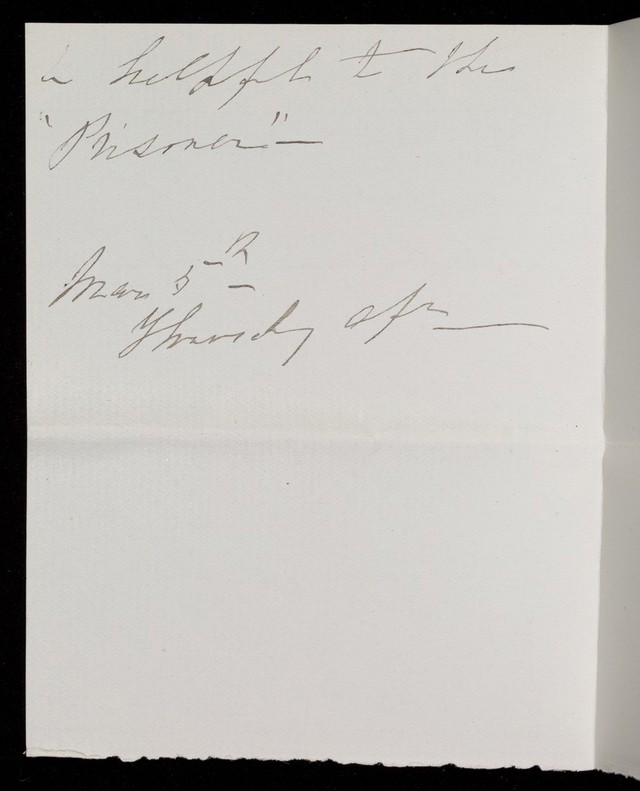 be helpful to the
"Prisoner" —
Mar 5th
Thursday aftn —